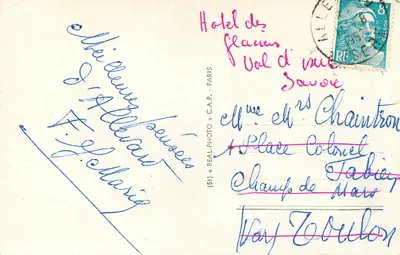 Meilleures pensées
d'Allevard
(51) « REAL-PHOTO » C.A.P. - PARIS
Hotel des
Glaciers
Val d'Isère
Savoie
ALLE
RF
8
Mme Mrs Chaintron
Place Colonel
Fabien
Champ de Mars
Var Toulon